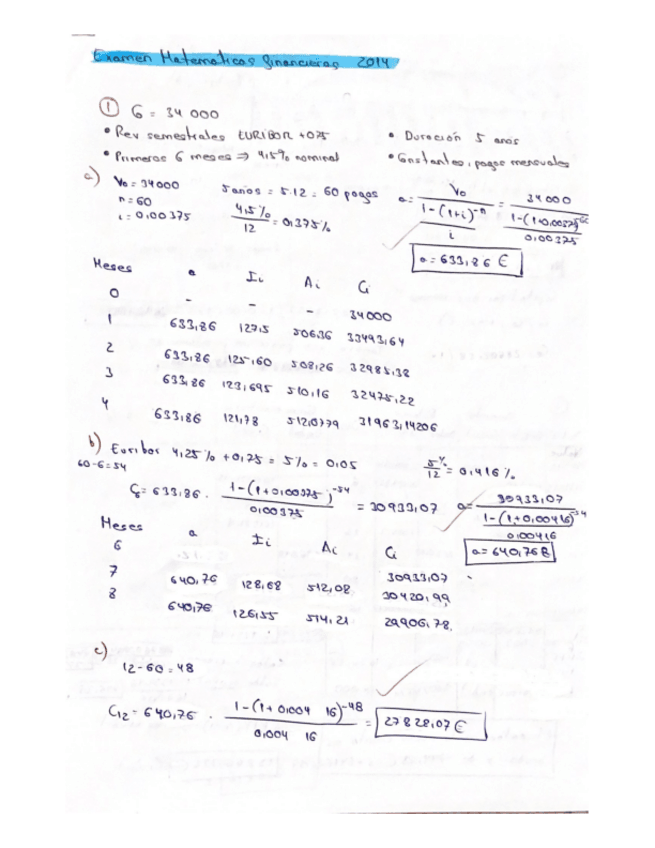 Examen Matematicas financieras 2014
① G = 34 000
• Rev semestrales EURIBOR +0,75 • Duración 5 años
• Primeros 6 meses ⇒ 4,5% nominal • Constantes, pagos mensuales
a) V₀ = 34000 5 años = 5·12 = 60 pagos a = V₀ / (1-(1+i)⁻ⁿ / i) = 34000 / (1-(1+0,00375)⁻⁶⁰ / 0,00375)
n = 60 4,5% / 12 = 0,375%
i = 0,00375
a = 633,86 €
Meses a Ii Ai Ci
0 - - - 34000
1 633,86 127,5 506,36 33493,64
2 633,86 125,60 508,26 32985,38
3 633,86 123,695 510,16 32475,22
4 633,86 121,78 512,0779 31963,14206
b) Euribor 4,25% + 0,75 = 5% = 0,05 5% / 12 = 0,416%
60-6=54
C₆ = 633,86 · 1-(1+0,00375)⁻⁵⁴ / 0,00375 = 30933,07 a = 30933,07 / (1-(1+0,00416)⁻⁵⁴ / 0,00416)
a = 640,76
Meses a Ii Ai Ci
6 30933,07
7 640,76 128,68 512,08 30420,99
8 640,76 126,55 514,21 29906,78
c)
12-60=48
C₁₂ = 640,76 · 1-(1+0,004 16)⁻⁴⁸ / 0,004 16 = 27828,07 €